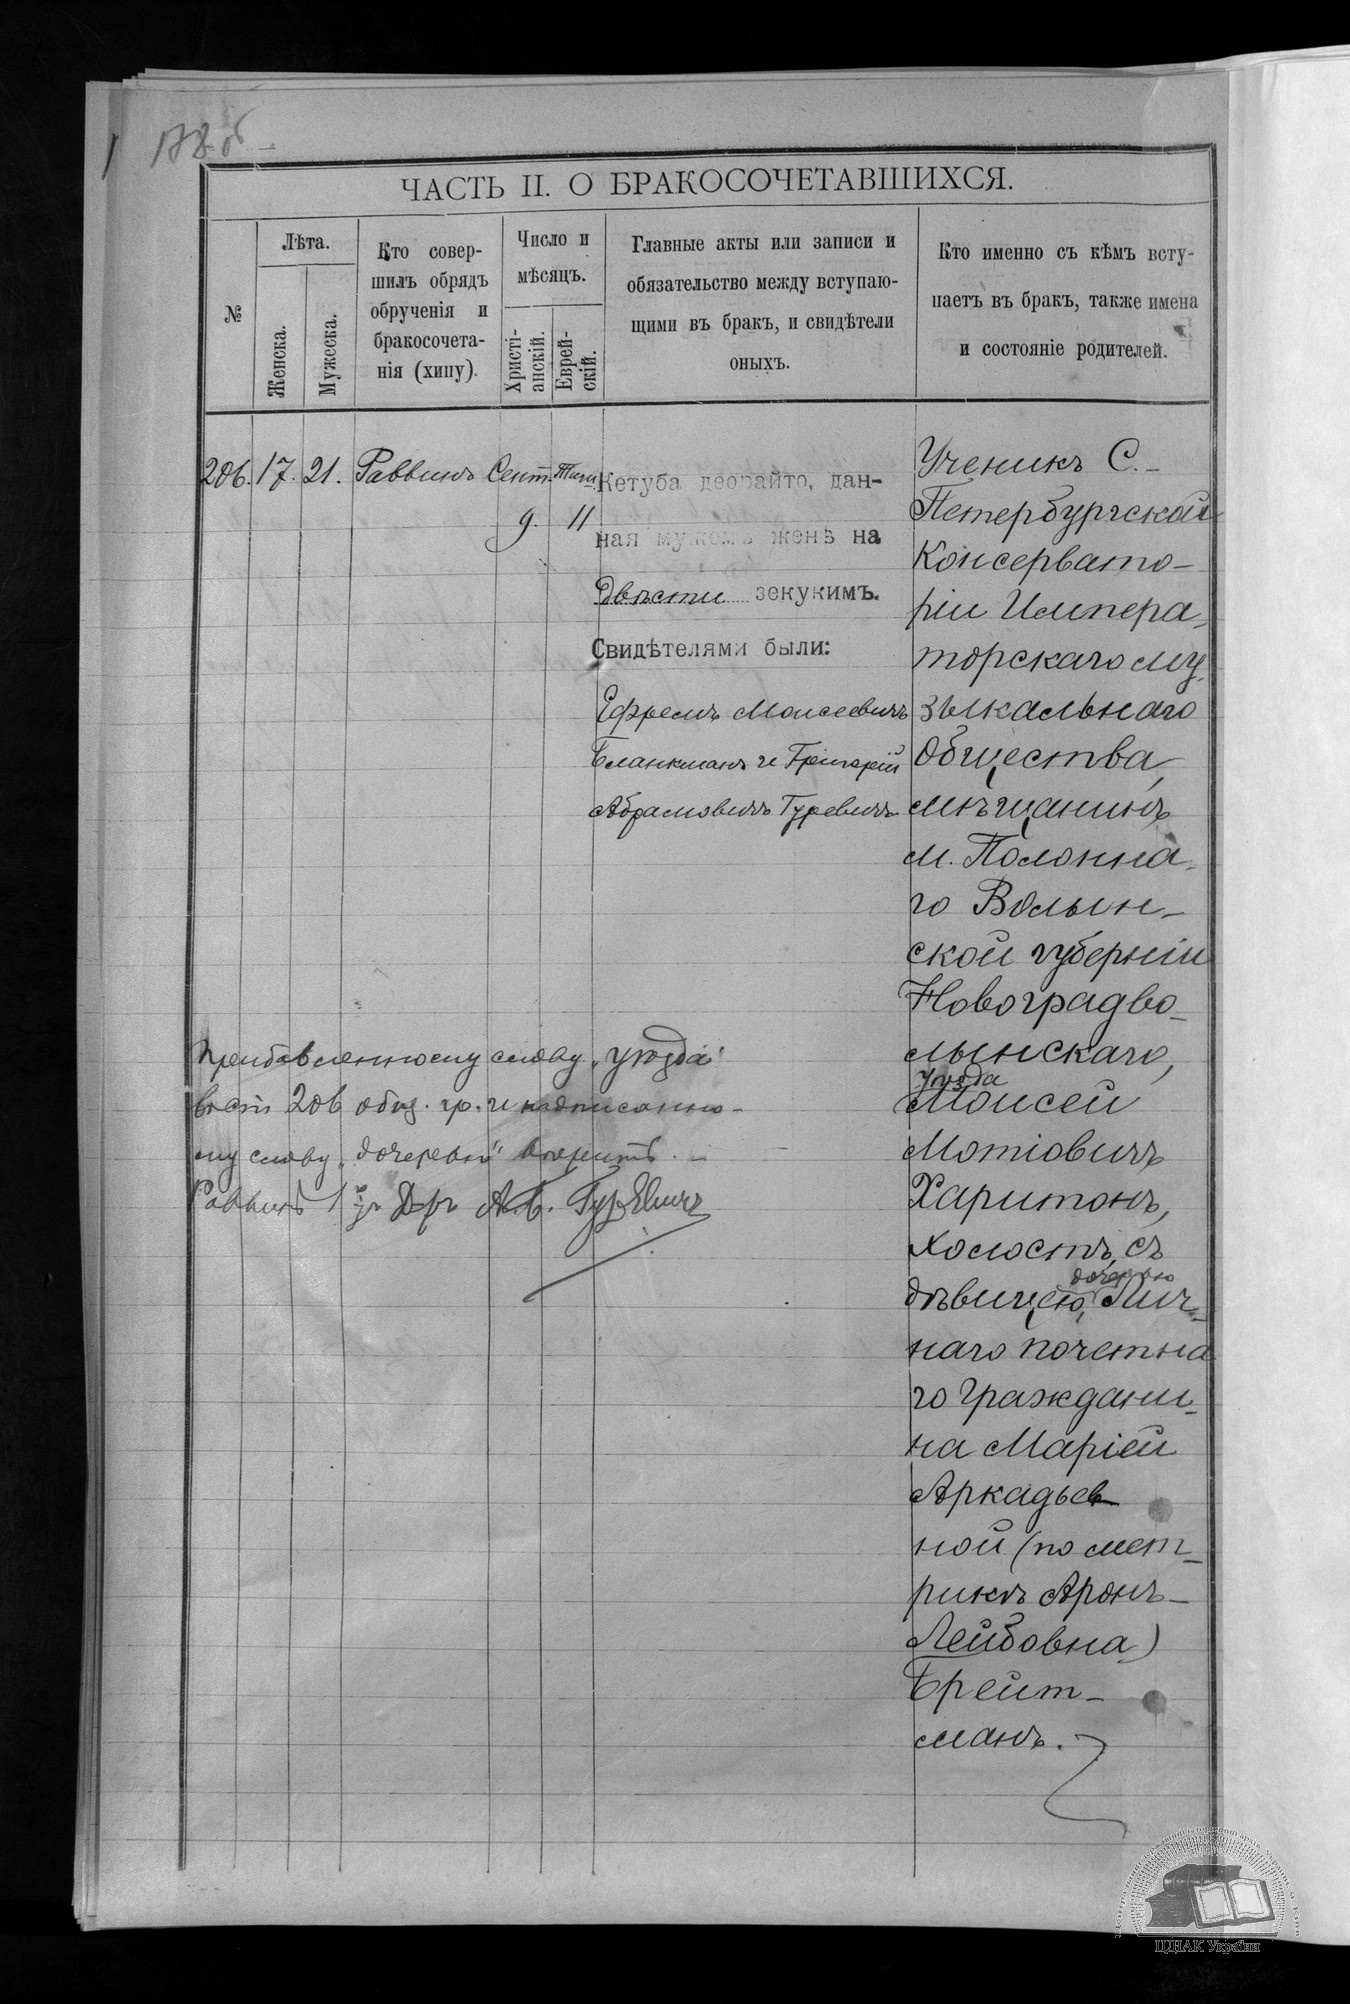 ЧАСТЬ II. О БРАКОСОЧЕТАВШИХСЯ.
№
Лѣта.
Женска.
Мужеска.
Кто совер-
шилъ обрядъ
обрученія и
бракосочета-
нія (хипу).
Число и
мѣсяцъ.
Христі-
анскій.
Еврей-
скій.
Главные акты или записи и
обязательство между вступаю-
щими въ бракъ, и свидѣтели
оныхъ.
Кто именно съ кѣмъ всту-
паетъ въ бракъ, также имена
и состояніе родителей.
206. 17. 21. Раввинъ Сент. Тиш.
9. 11
Кетуба деорайто, дан-
ная мужемъ женѣ на
Двѣсти зекукимъ.
Свидѣтелями были:
Ефремъ Моисеевичъ
Бланкманъ и Григорій
Абрамовичъ Гуревичъ
Ученикъ С.-
Петербургской
Консервато-
ріи Импера-
торскаго му-
зыкальнаго
Общества,
мѣщанинъ
м. Полонна-
го Волын-
ской губерніи
Новоградво-
лынскаго,
уѣзда
Моисей
Мотіовичъ
Харитонъ,
холостъ, съ
дочерью
дѣвицею, Лич-
наго почетна
го граждани-
на Маріей
Аркадьев-
ной (по мет-
рикѣ Аронъ-
Лейбовна)
Брейт-
манъ.
Прибавленному слову „уѣзда"
въ ст 206 общ. гр. и надписанно-
му слову „дочерью" вѣрить. -
Раввинъ Др А.Б. Гурѣвичъ
ЦДІАК України